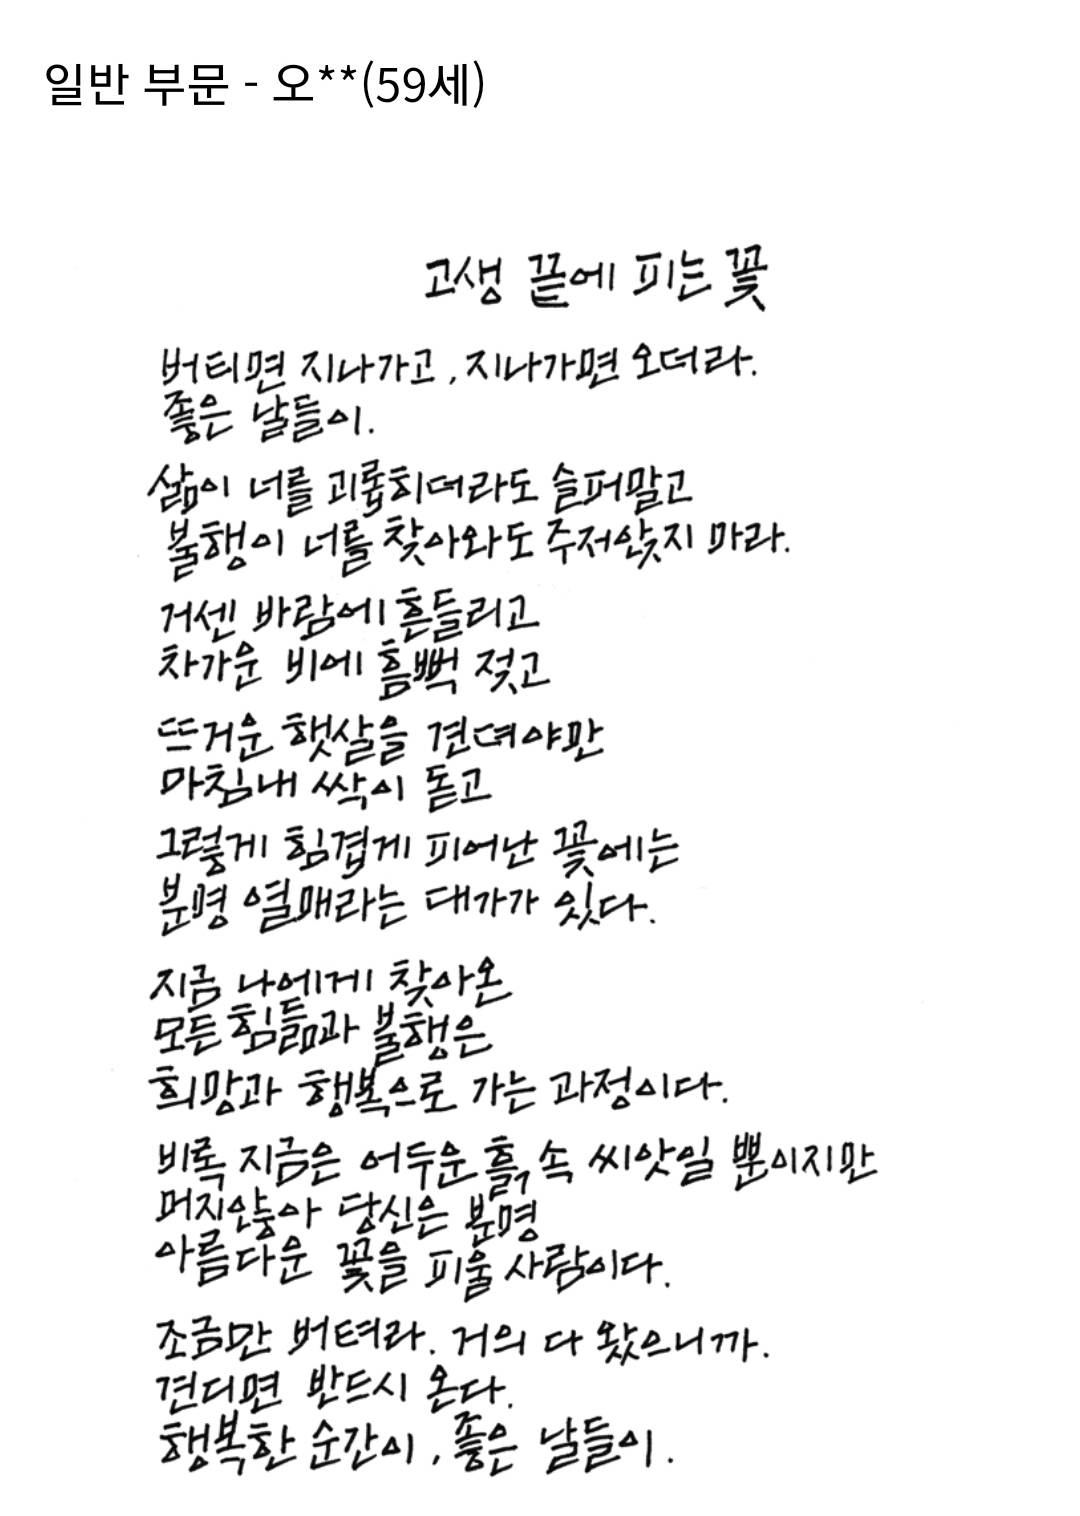 일반 부문 - 오**(59세)
고생 끝에 피는 꽃
버티면 지나가고, 지나가면 오더라.
좋은 날들이.
삶이 너를 괴롭히더라도 슬퍼말고
불행이 너를 찾아와도 주저앉지 마라.
거센 바람에 흔들리고
차가운 비에 흠뻑 젖고
뜨거운 햇살을 견뎌야만
마침내 싹이 돋고
그렇게 힘겹게 피어난 꽃에는
분명 열매라는 대가가 있다.
지금 나에게 찾아온
모든 힘듦과 불행은
희망과 행복으로 가는 과정이다.
비록 지금은 어두운 흙 속 씨앗일 뿐이지만
머지않아 당신은 분명
아름다운 꽃을 피울 사람이다.
조금만 버텨라. 거의 다 왔으니까.
견디면 반드시 온다.
행복한 순간이, 좋은 날들이.